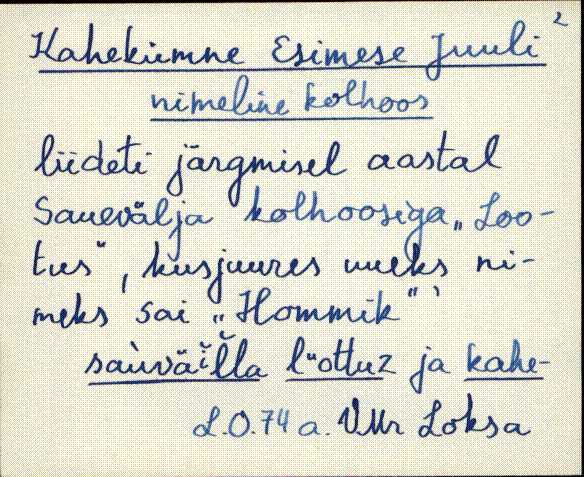 2
Kahekümne Esimese Juuli
nimeline kolhoos
liideti järgmisel aastal
Sauevälja kolhoosiga „Loo-
tus", kusjuures uueks ni-
meks sai „Hommik"
ja kahe-
L.O.74 a. VMr Loksa